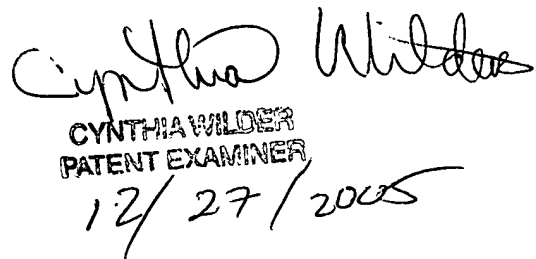 Cynthia Wilder
CYNTHIA WILDER
PATENT EXAMINER
12/27/2005